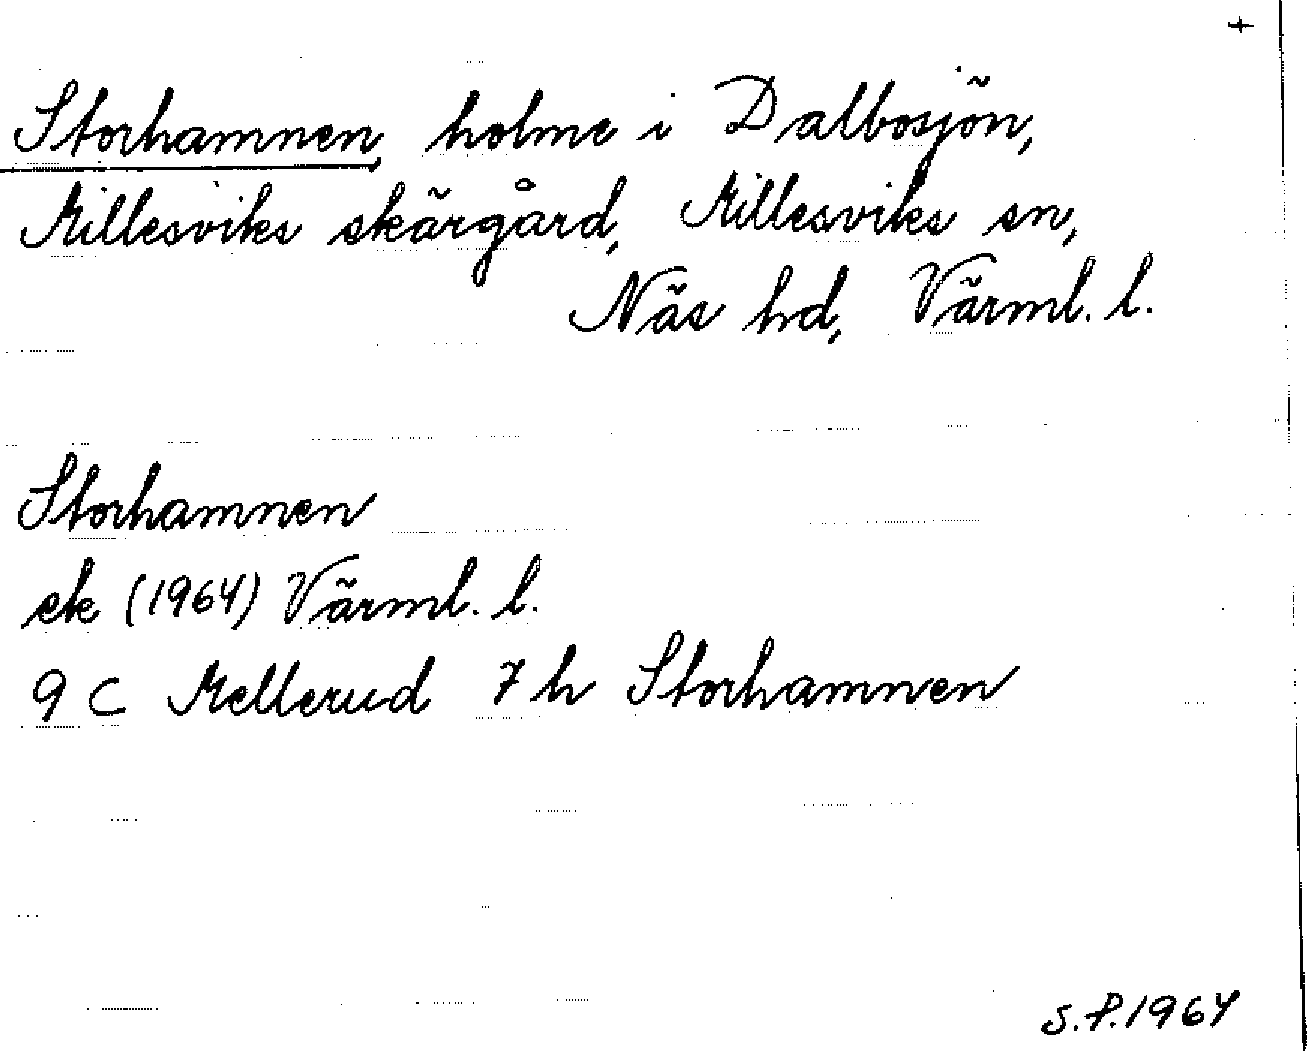 +
Storhamnen, holme i Dalbosjön,
Millesviks skärgård, Millesviks sn,
Näs hd, Värml. l.
Storhamnen
ek (1964) Värml. l.
9 C Mellerud 7 h Storhamnen
S.P. 1964